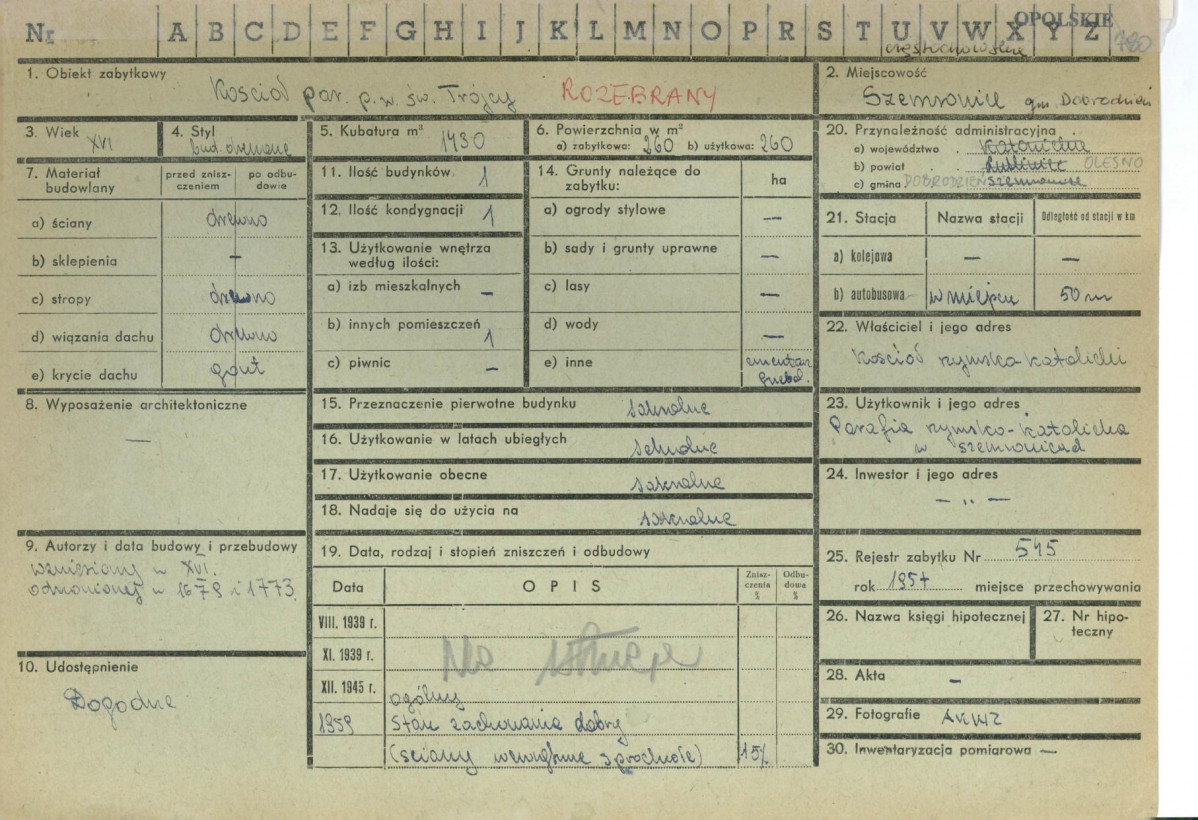 OPOLSKIE
Nr A B C D E F G H I J K L M N O P R S T U V W X Y Z
częstochowskie 780
1. Obiekt zabytkowy
Kościół par. p.w. św. Trójcy ROZEBRANY
2. Miejscowość
Szemrowice gm. Dobrodzień
3. Wiek
XVI
4. Styl
bud. drewniane
5. Kubatura m³ 1430
6. Powierzchnia w m²
a) zabytkowa: 260 b) użytkowa: 260
20. Przynależność administracyjna
a) województwo . Katowickie
b) powiat . Lubliniec OLESNO
c) gmina DOBRODZIEŃ Szemrowice
7. Materiał budowlany
przed zniszczeniem
po odbudowie
a) ściany drewno
b) sklepienia –
c) stropy drewno
d) wiązania dachu drewno
e) krycie dachu gont
11. Ilość budynków 1
12. Ilość kondygnacji 1
13. Użytkowanie wnętrza
według ilości:
a) izb mieszkalnych –
b) innych pomieszczeń 1
c) piwnic –
14. Grunty należące do
zabytku: ha
a) ogrody stylowe —
b) sady i grunty uprawne —
c) lasy —
d) wody —
e) inne cmentarz
grzeb.
21. Stacja Nazwa stacji Odległość od stacji w km
a) kolejowa — —
b) autobusowa w miejscu 50 m
22. Właściciel i jego adres
Kościół rzymsko katolicki
8. Wyposażenie architektoniczne
—
15. Przeznaczenie pierwotne budynku sakralne
16. Użytkowanie w latach ubiegłych sakralne
17. Użytkowanie obecne sakralne
18. Nadaje się do użycia na sakralne
23. Użytkownik i jego adres
Parafia rzymsko-katolicka
w Szemrowicach
24. Inwestor i jego adres
— „ —
9. Autorzy i data budowy i przebudowy
wzniesiony w XVI.
odnowionej w 1678 i 1773.
10. Udostępnienie
Dogodne
19. Data, rodzaj i stopień zniszczeń i odbudowy
Data OPIS Zniszczenia % Odbudowa %
VIII. 1939 r.
XI. 1939 r. Nie istnieje
XII. 1945 r. ogólny
1959 Stan zachowania dobry
(ściany wewnętrzne spróchniałe) 15%
25. Rejestr zabytku Nr 545
rok 1957 miejsce przechowywania
26. Nazwa księgi hipotecznej
27. Nr hipoteczny
28. Akta –
29. Fotografie
30. Inwentaryzacja pomiarowa —